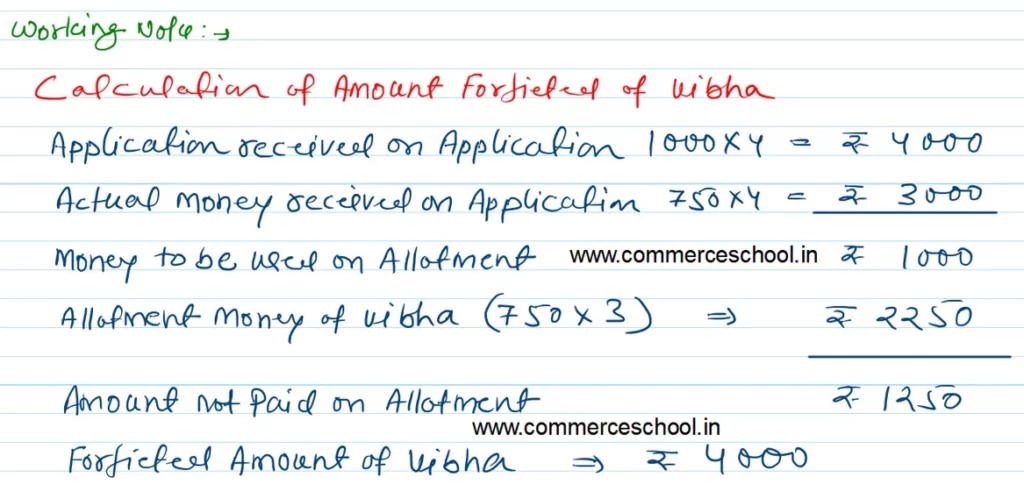 Working Note:→
Calculation of Amount Forfieted of Vibha
Application received on Application 1000×4 = ₹ 4000
Actual Money received on Application 750×4 = ₹ 3000
Money to be used on Allotment www.commerceschool.in ₹ 1000
Allotment Money of Vibha (750×3) ⇒ ₹ 2250
Amount not Paid on Allotment ₹ 1250
www.commerceschool.in
Forfieted Amount of Vibha ⇒ ₹ 4000